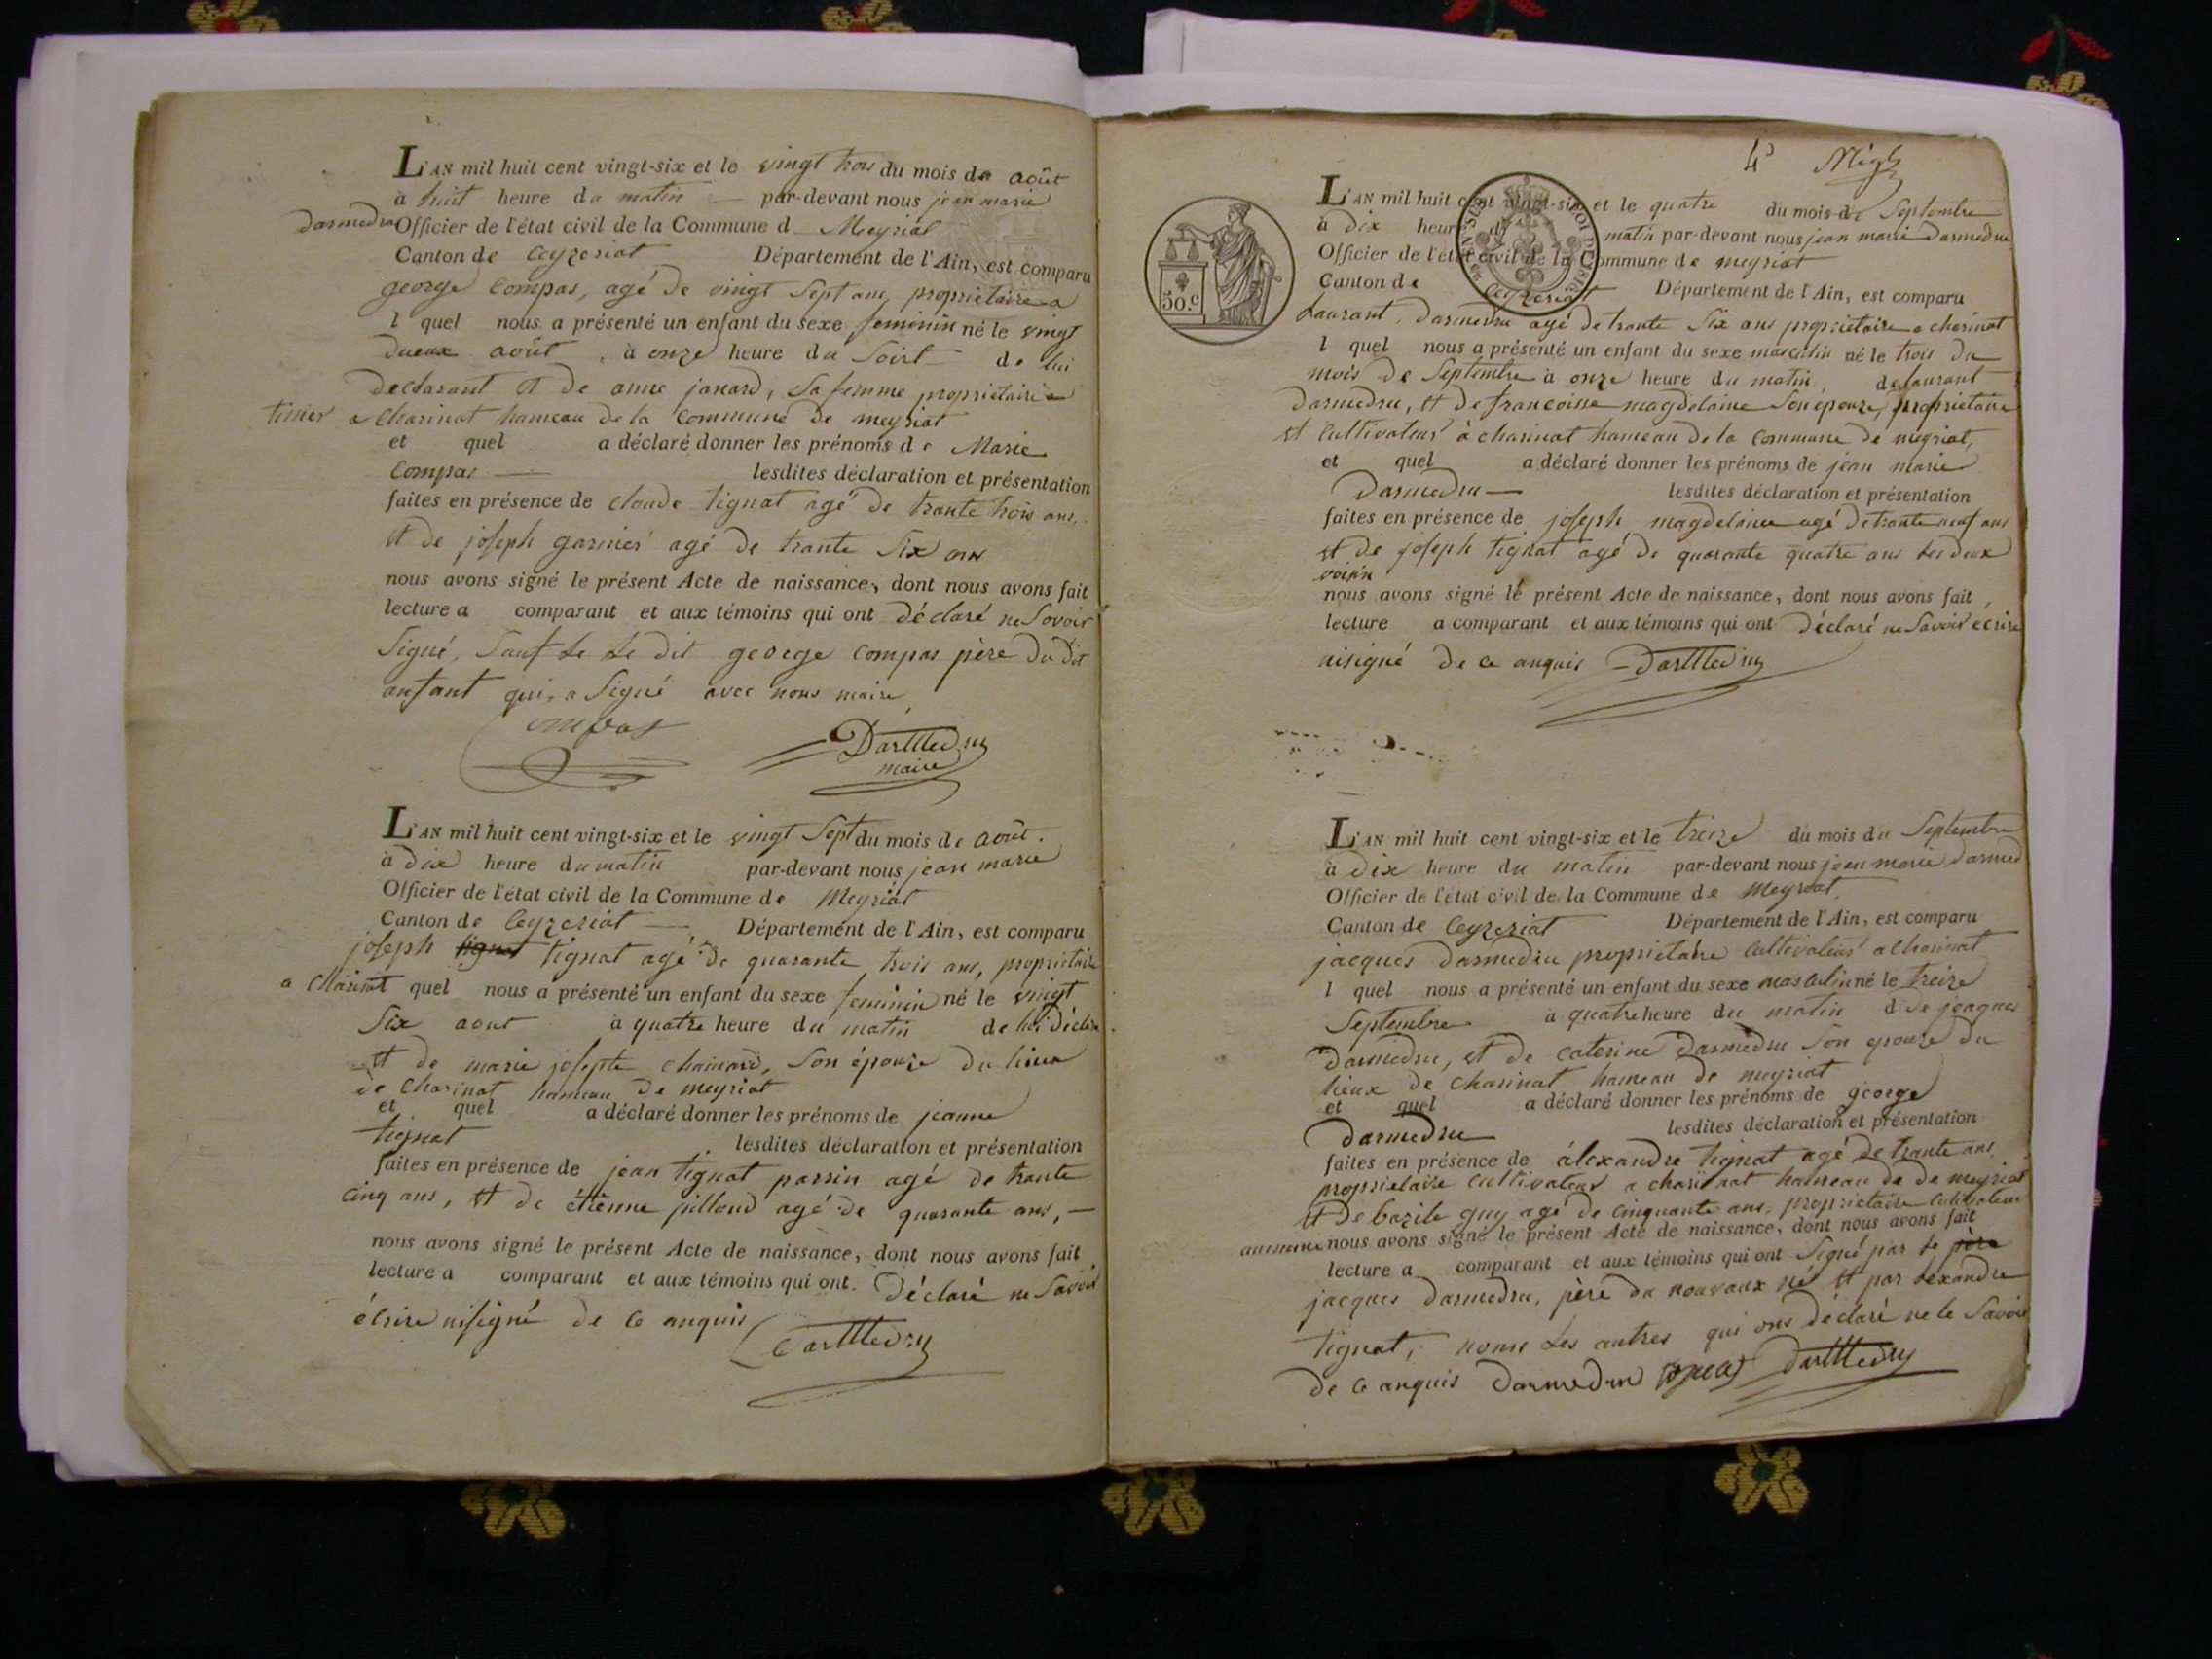 L'AN mil huit cent vingt-six et le vingt trois du mois de août
à huit heure du matin par-devant nous jean marie
darmedru Officier de l'état civil de la Commune d Meyriat
Canton de Ceyzeriat Département de l'Ain, est comparu
george Compas, agé de vingt Sept ans, propriétaire a
l quel nous a présenté un enfant du sexe feminin né le vingt
dueux août, à onze heure du Soirt de lui
declarant et de anne janard, Sa femme propriétaire
a Charinat hameau de la Commune de meyriat
et quel a déclaré donner les prénoms de Marie
Compas lesdites déclaration et présentation
faites en présence de claude tignat agé de trante trois ans,
et de joseph garnier agé de trante Six ans
nous avons signé le présent Acte de naissance, dont nous avons fait
lecture a comparant et aux témoins qui ont déclaré ne Savoir
Signé, Sauf Le Le dit george compas père du dit
anfant qui, a Signé avec nous maire
compas
Darmedru
maire
L'AN mil huit cent vingt-six et le vingt Sept du mois de août.
à dix heure du matin par-devant nous jean marie
Officier de l'état civil de la Commune de Meyriat
Canton de Ceyzeriat Département de l'Ain, est comparu
joseph tignat tignat agé de quarante trois ans, propriétaire
a Charinat quel nous a présenté un enfant du sexe feminin né le vingt
Six aout à quatre heure du matin de lui
et de marie josepte chanard, Son épouze du lieux
de Charinat hameau de meyriat
et quel a déclaré donner les prénoms de jeanne
tignat lesdites déclaration et présentation
faites en présence de jean tignat agé de trante
cinq ans, et de étienne pilloud agé de quarante ans,
nous avons signé le présent Acte de naissance, dont nous avons fait
lecture a comparant et aux témoins qui ont. Déclaré ne Savoir
écrire nisigné de ce anquis
Darmedru
4e
L'AN mil huit cent vingt-six et le quatre du mois de Septembre
à dix heure du matin par-devant nous jean marie darmedru
Officier de l'état civil de la Commune de meyriat
Canton de Ceyzeriat Département de l'Ain, est comparu
50.c
Laurant, darmedru agé de trante Six ans propriétaire a charinat
l quel nous a présenté un enfant du sexe masculin né le trois du
mois de Septembre à onze heure du matin, de laurant
darmedru, et de francoise magdelaine Son epouze, propriétaire
et Cultivateur à charinat hameau de la commune de meyriat,
et quel a déclaré donner les prénoms de jean marie
Darmedru lesdites déclaration et présentation
faites en présence de joseph magdelaine agé de trante neuf ans
et de joseph tignat agé de quarante quatre ans Les deux
voisin
nous avons signé le présent Acte de naissance, dont nous avons fait
lecture a comparant et aux témoins qui ont Déclaré ne Savoir écrire
nisigné de ce anquis Darmedru
L'AN mil huit cent vingt-six et le treize du mois de Septembre
à dix heure du matin par-devant nous jean marie darmed
Officier de l'état civil de la Commune de Meyriat
Canton de Ceyzeriat Département de l'Ain, est comparu
jacques darmedru propriétaire cultivateur a Charinat
l quel nous a présenté un enfant du sexe masculin né le treize
Septembre à quatre heure du matin d de jeaques
darmedru, et de caterine Darmedru Son epouze du
lieux de charinat hameau de meyriat
et quel a déclaré donner les prénoms de george
darmedru lesdites déclaration et présentation
faites en présence de álexandre tignat agé de trante ans
propriétaire Cultivateur a charinat hameau de de meyriat
et de bazile guy agé de cinquante ans, propriétaire cultivateur
aumeme nous avons signé le présent Acte de naissance, dont nous avons fait
lecture a comparant et aux témoins qui ont Signé par le père
jacques darmedru, père du nouvaux né et par alexandre
tignat, nome Les autres qui ons déclaré ne le Savoir
de ce anquis Darmedru Darmedru